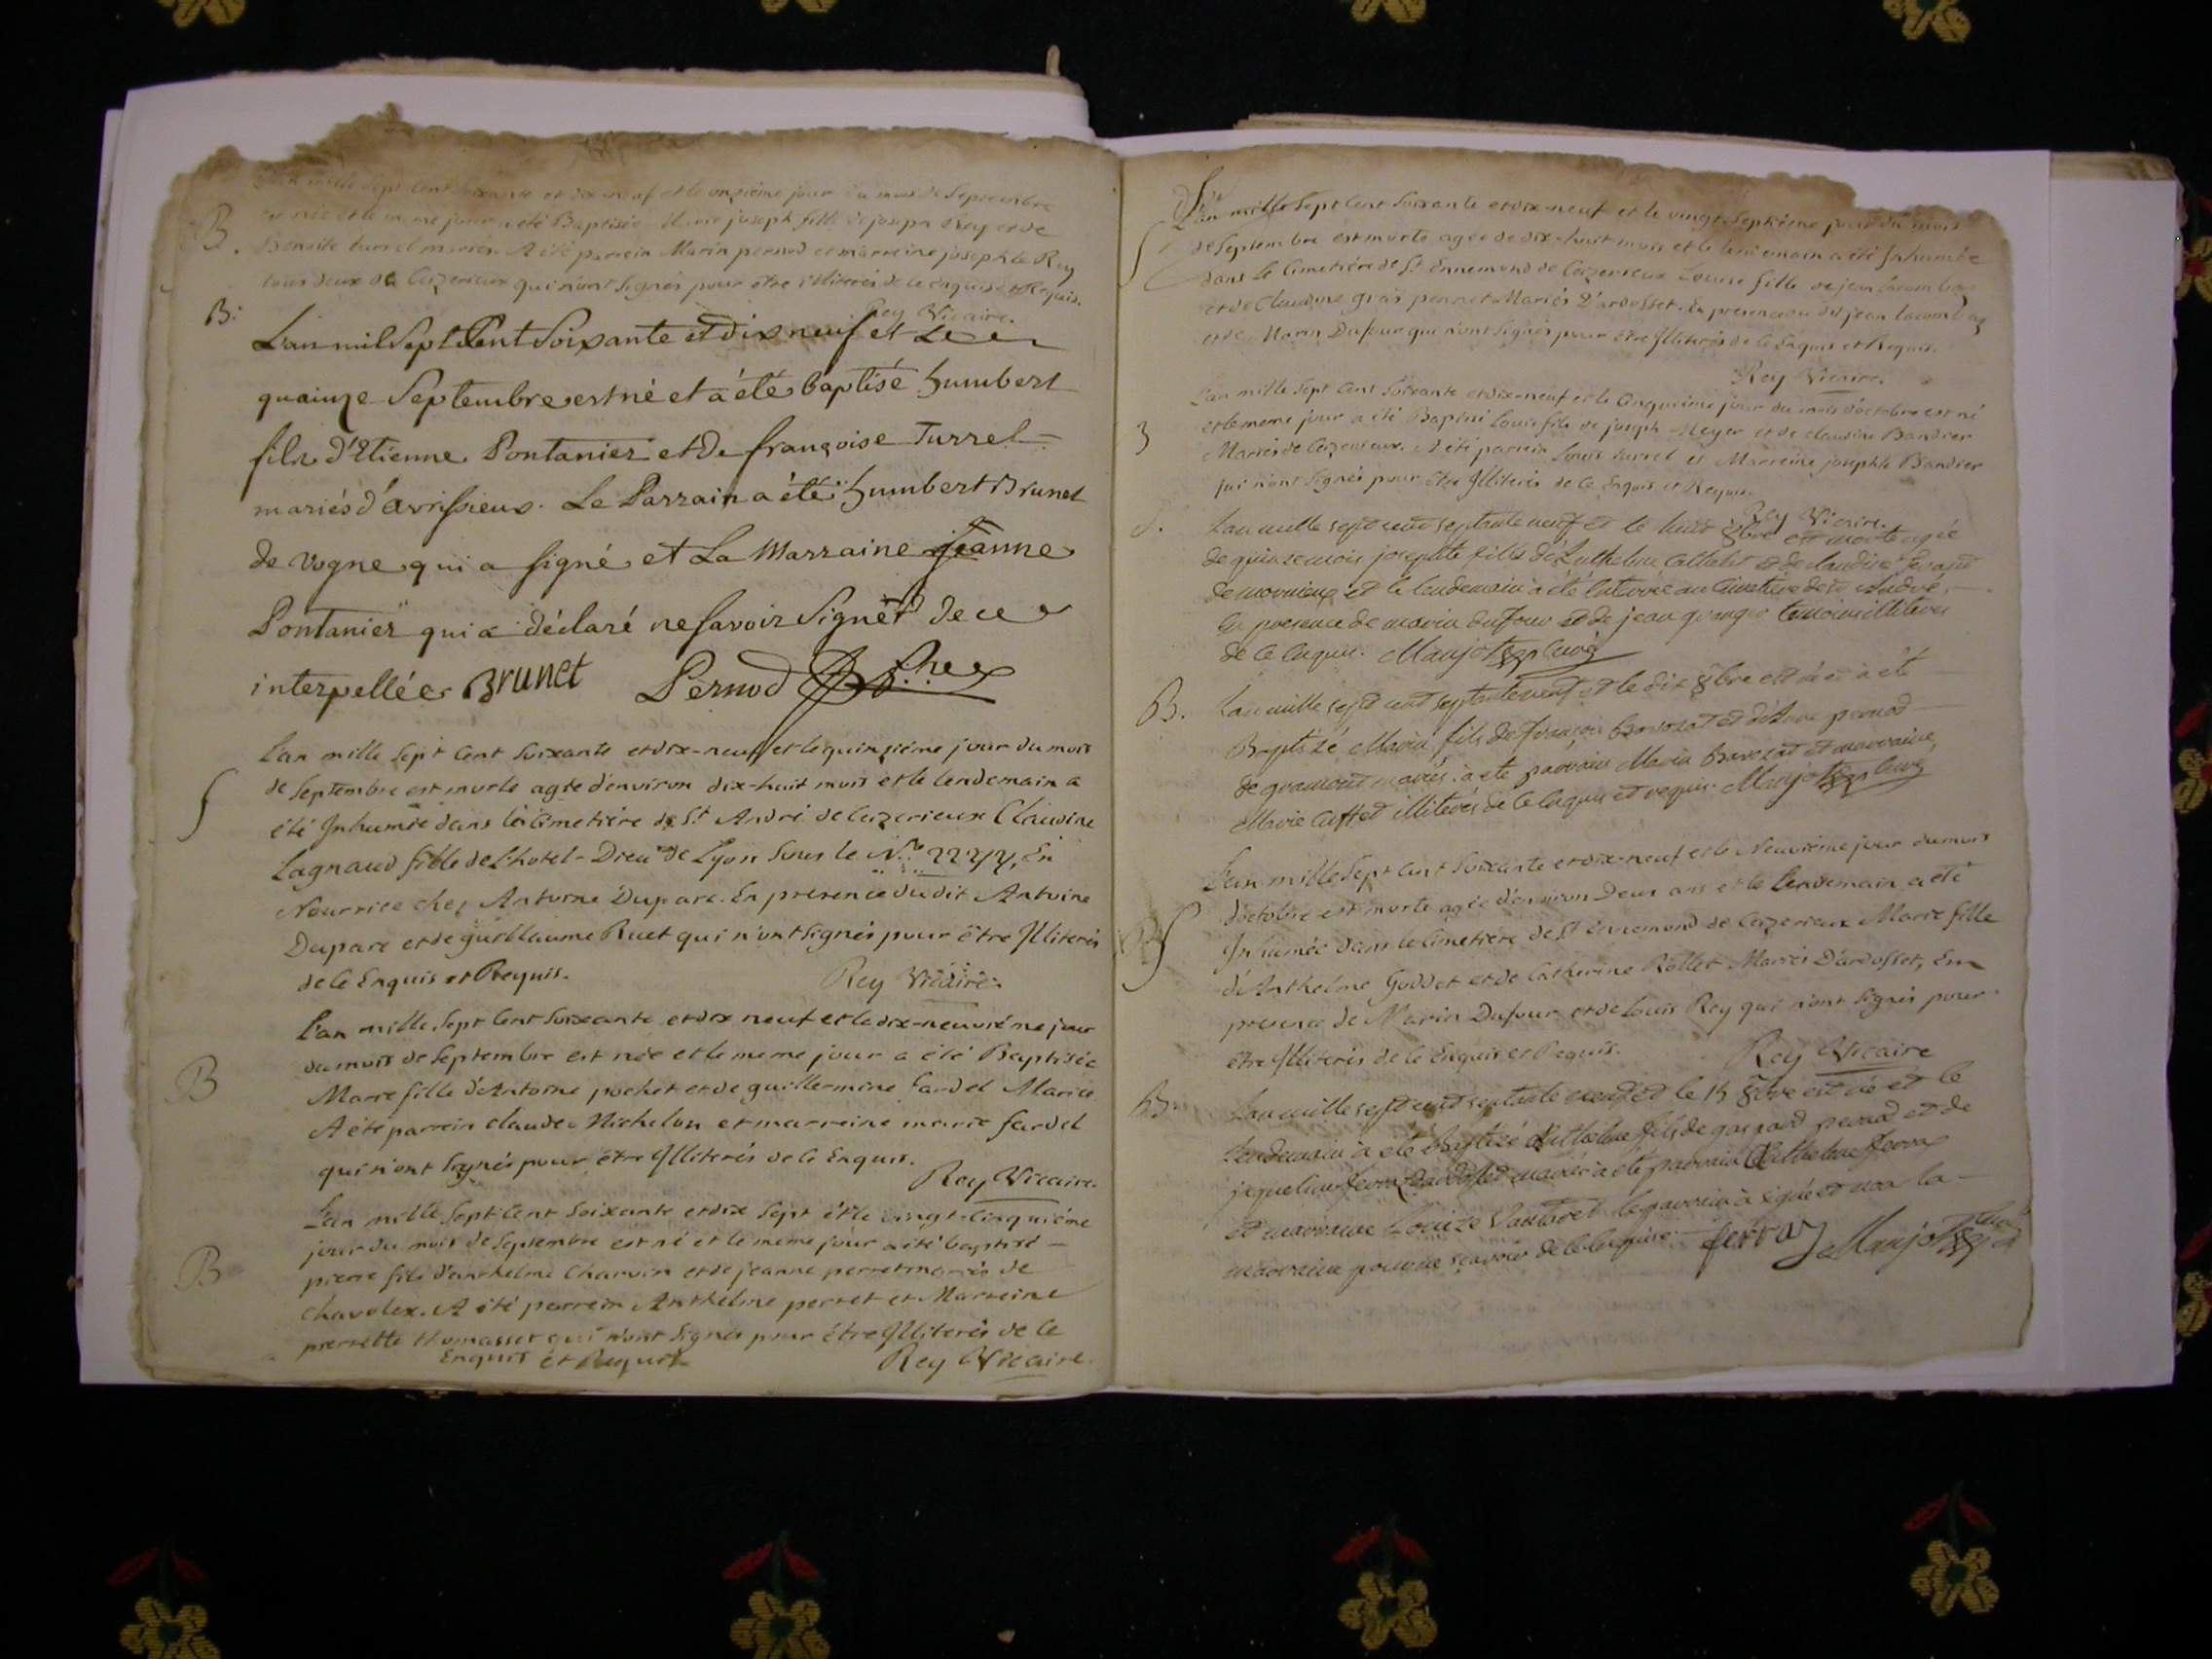 L'an mille Sept Cent Soixante et dix-neuf et le onzième jour du mois de Septembre
est née et le meme jour a été Baptisée Marie joseph fille de joseph Rey et de
B. Benoite turrel mariés. A été parrein Marin pernod et marreine josephte Rey
tous deux de Ceizerieux qui n'ont Signés pour être Illiterés de ce Enquis et Requis.
Rey Vicaire.
B: L'an mil Sept Cent Soixante et dix neuf et Le
quainze Septembre est né et a été baptisé humbert
fils d'Etienne Pontanier et De françoise Turrel
mariés d'avrissieux. Le Parrain a été humbert Brunet
de vogne qui a signé et La Marraine jeanne
Pontanier qui a déclaré ne savoir Signer de ce
interpellée. Brunet Pernod
L'an mille Sept Cent Soixante et dix-neuf et le quinzième jour du mois
S de Septembre est morte agée d'environ dix-huit mois et le lendemain a
été Inhumée dans le Cimetière de St André de Ceizerieux Claudine
Lagnaud fille de l'hotel-Dieu de Lyon Sous le N.o En
Nourrice chez Antoine Duparc. En presence dudit Antoine
Duparc et de guillaume Ruet qui n'ont Signés pour être Illiterés
de ce Enquis et Requis. Rey Vicaire.
L'an mille Sept Cent Soixante et dix neuf et le dix-neuvième jour
du mois de Septembre est née et le meme jour a été Baptisée
B Marie fille d'Antoine pochet et de guillermine fardel Mariés
A été parrein claude Michelon et marreine marie fardel
qui n'ont Signés pour être Illiterés de ce Enquis.
Rey Vicaire.
L'an mille Sept Cent Soixante et dix Sept et le vingt-cinquième
jour du mois de Septembre est né et le meme jour a été baptisé
B pierre fils d'anthelme Charvin et de jeanne perret mariés de
Chavolex. A été parrein Anthelme perret et Marreine
pierrette thomasset qui n'ont Signés pour être Illiterés de ce
Enquis et Requis Rey Vicaire.
L'an mille Sept Cent Soixante et dix-neuf et le vingt Septième jour du mois
S de Septembre est morte agée de dix-huit mois et le lendemain a été Inhumée
dans le Cimetière de St Ennemond de Ceizerieux Louise fille de jean
et de Claudine gras perret Mariés D'ardosset. En presence du dit jean
et de Marin Dufour qui n'ont Signés pour être Illiterés de ce Enquis et Requis.
Rey Vicaire.
L'an mille Sept Cent Soixante et dix-neuf et le Cinquième jour du mois d'octobre est né
et le meme jour a été Baptisé Louis fils de joseph Meyer et de claudine Bandier
Mariés de Ceizerieux. A été parrein Louis turrel et Marreine josephte Bandier
qui n'ont Signés pour être Illiterés de ce Enquis et Requis.
Rey Vicaire.
S. L'an mille sept cent septante neuf et le huit 8bre est morte agée
de quinze mois josephte fille d'Anthelme et de claudine
et le lendemain a été enterrée au Cimetière de St André.
En presence de marin dufour et de jean granger temoins illiterés
de ce enquis. Manjot curé
B. L'an mille sept cent septante neuf et le dix 8bre est né et a été
Baptisé Marin fils de françois et d'Anne pernod
de gramont mariés. a été parrain Marin et marraine
Marie Cuttet illiterés de ce enquis et requis. Manjot curé
L'an mille Sept Cent Soixante et dix-neuf et le Neuvième jour du mois
d'octobre est morte agée d'environ Deux ans et le lendemain a été
S Inhumée dans le Cimetière de St ennemond de Ceizerieux Marie fille
d'Anthelme Goddet et de Catherine Rollet Mariés D'ardosset, En
presence de Marin Dufour et de Louis Rey qui n'ont Signés pour
être Illiterés de ce Enquis et Requis. Rey Vicaire
B. L'an mille sept cent septante neuf et le 15 8bre est né et le
lendemain a été baptisé Anthelme fils de gaspard pernod et de
jaqueline d'ardosset mariés a été parrain Anthelme
et marraine Louize le parrain a signé et non la
marraine pour ne sçavoir de ce enquise. ferra Manjot curé